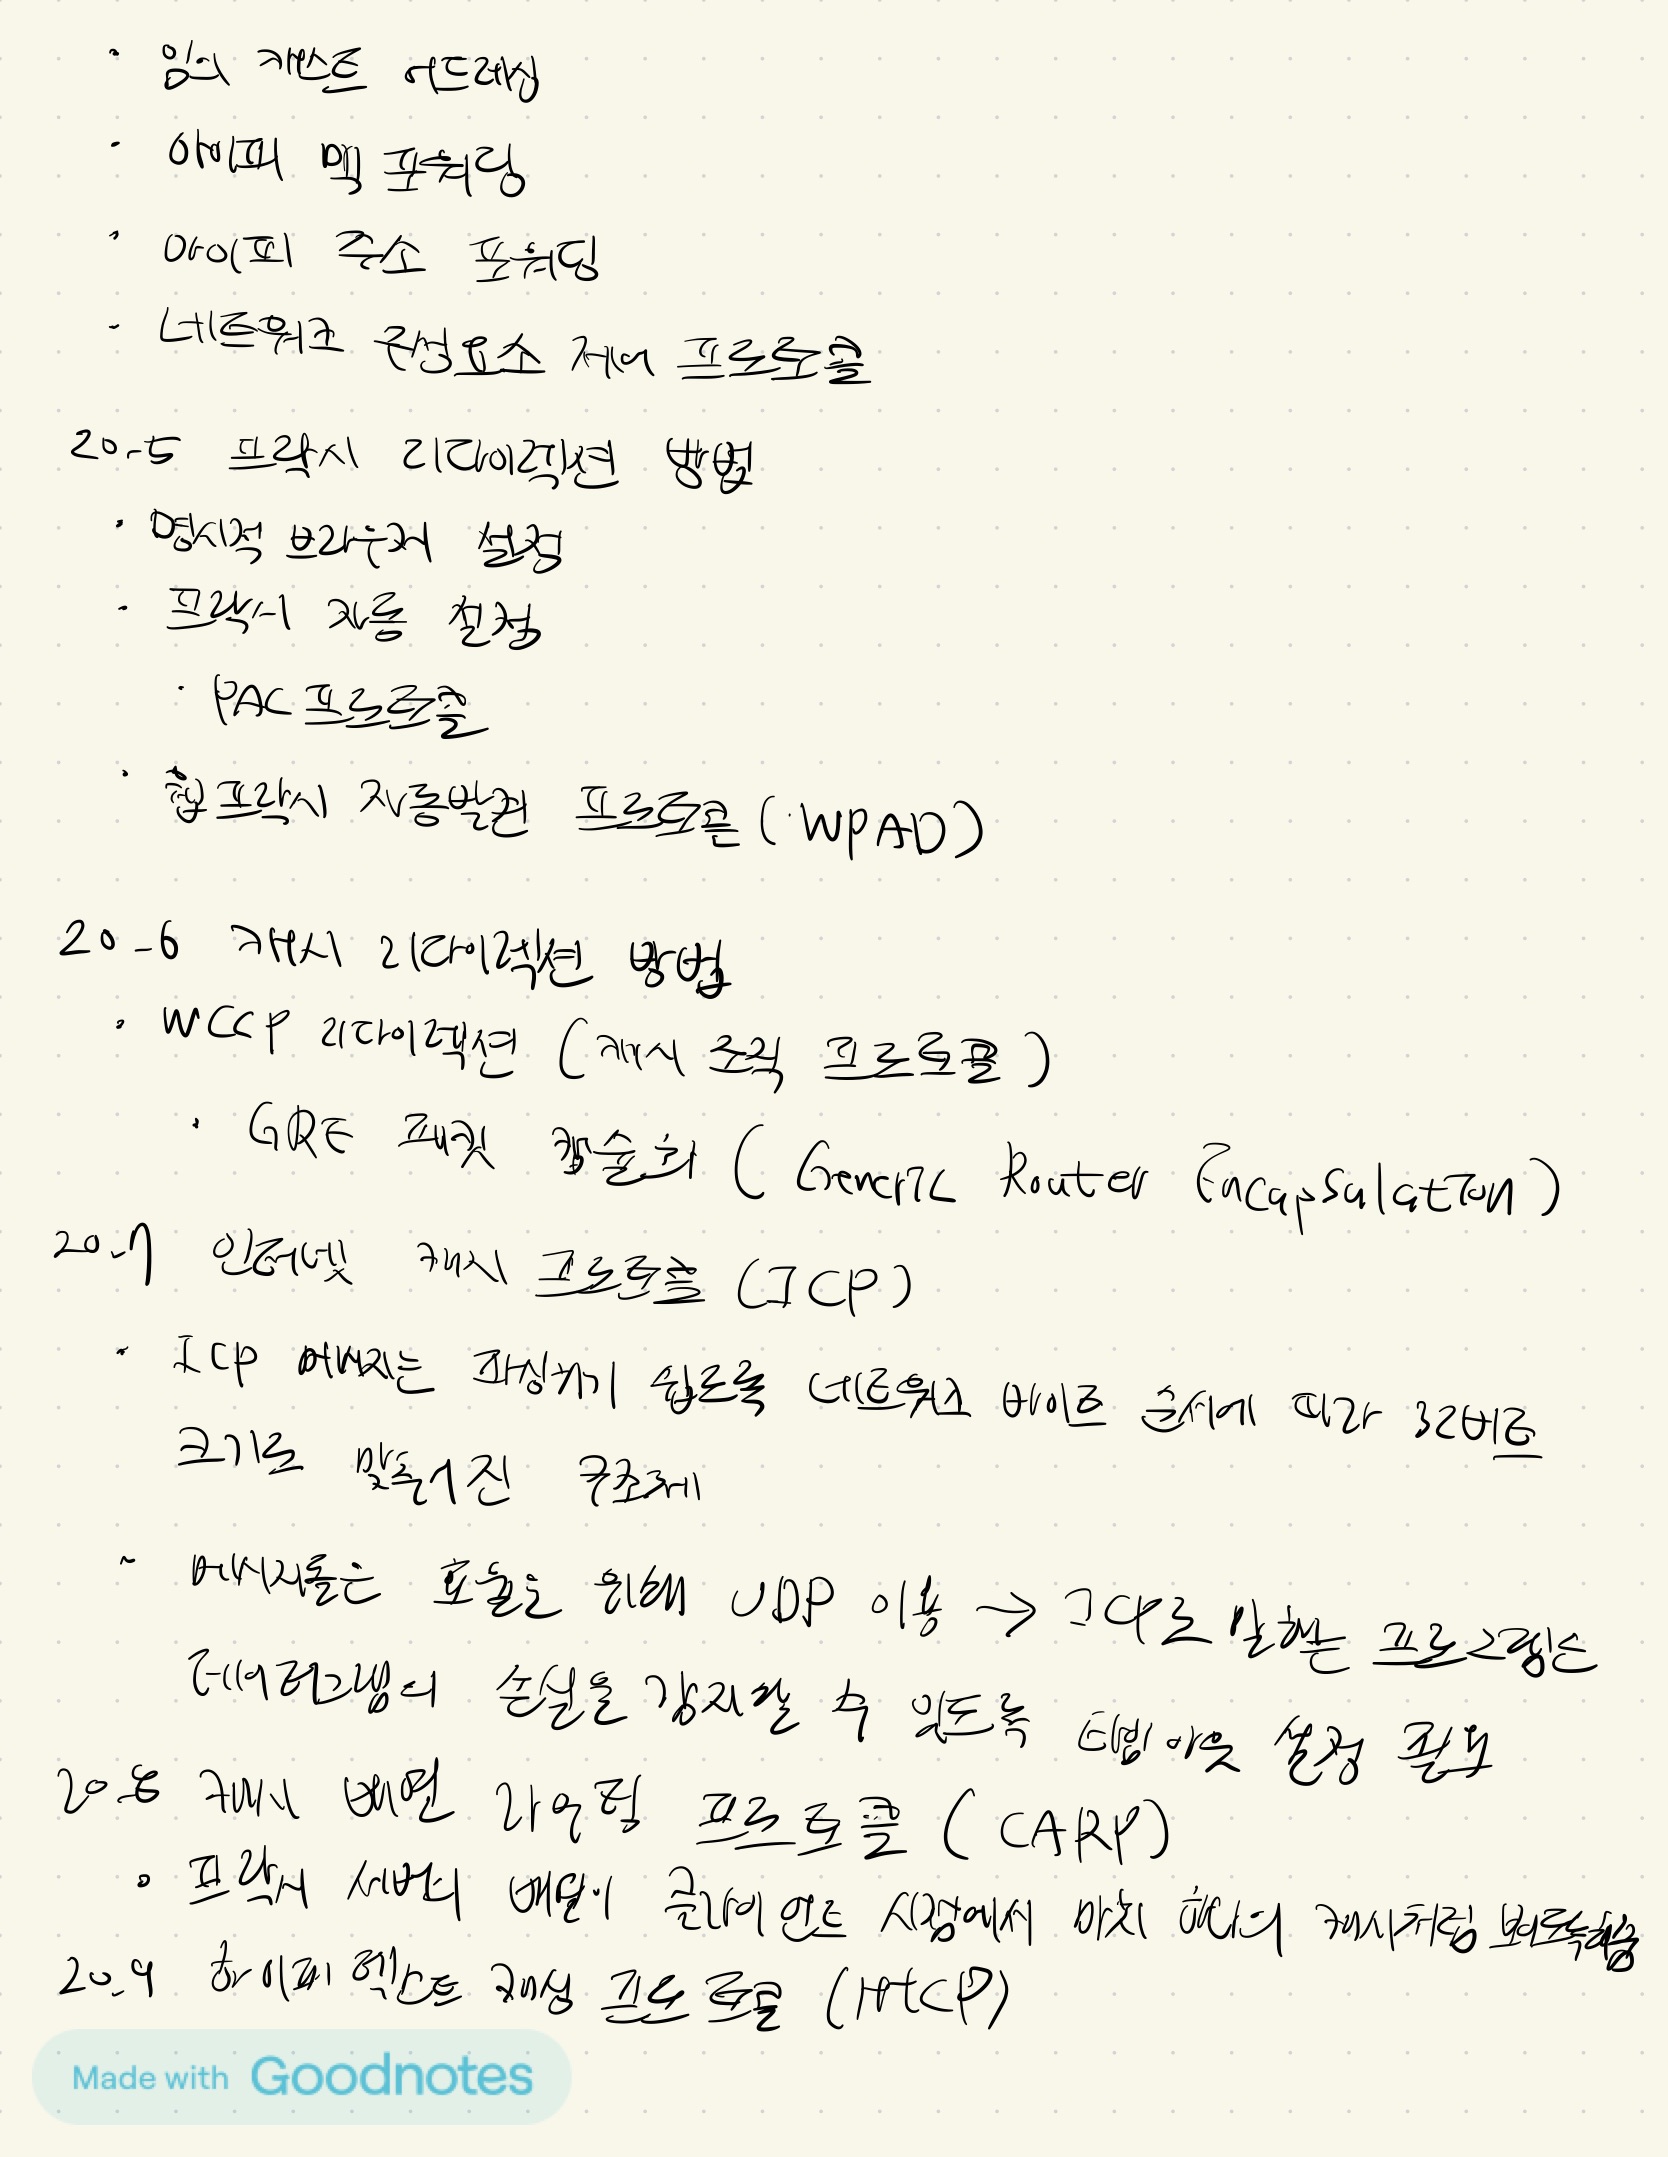 · 임의 캐스트 어드레싱
· 아이피 맥 포워딩
· 아이피 주소 포워딩
· 네트워크 구성요소 제어 프로토콜
20-5 프락시 리다이렉션 방법
· 명시적 브라우저 설정
· 프락시 자동 설정
· PAC 프로토콜
· 웹 프락시 자동발견 프로토콜 (WPAD)
20-6 캐시 리다이렉션 방법
· WCCP 리다이렉션 (캐시 조직 프로토콜)
· GRE 패킷 캡슐화 (Generic Router Encapsulation)
20-7 인터넷 캐시 프로토콜 (ICP)
· ICP 메시지는 파싱하기 쉽도록 네트워크 바이트 순서에 따라 32비트
크기로 맞추어진 구조체
~ 메시지들은 효율을 위해 UDP 이용 → ICP로 말하는 프로그램은
데이터그램의 손실을 감지할 수 있도록 타임아웃 설정 필요
20-8 캐시 배열 라우팅 프로토콜 (CARP)
· 프락시 서버의 배열이 클라이언트 시점에서 마치 하나의 캐시처럼 보이도록 해줌
20-9 하이퍼텍스트 캐싱 프로토콜 (HtCP)
Made with Goodnotes